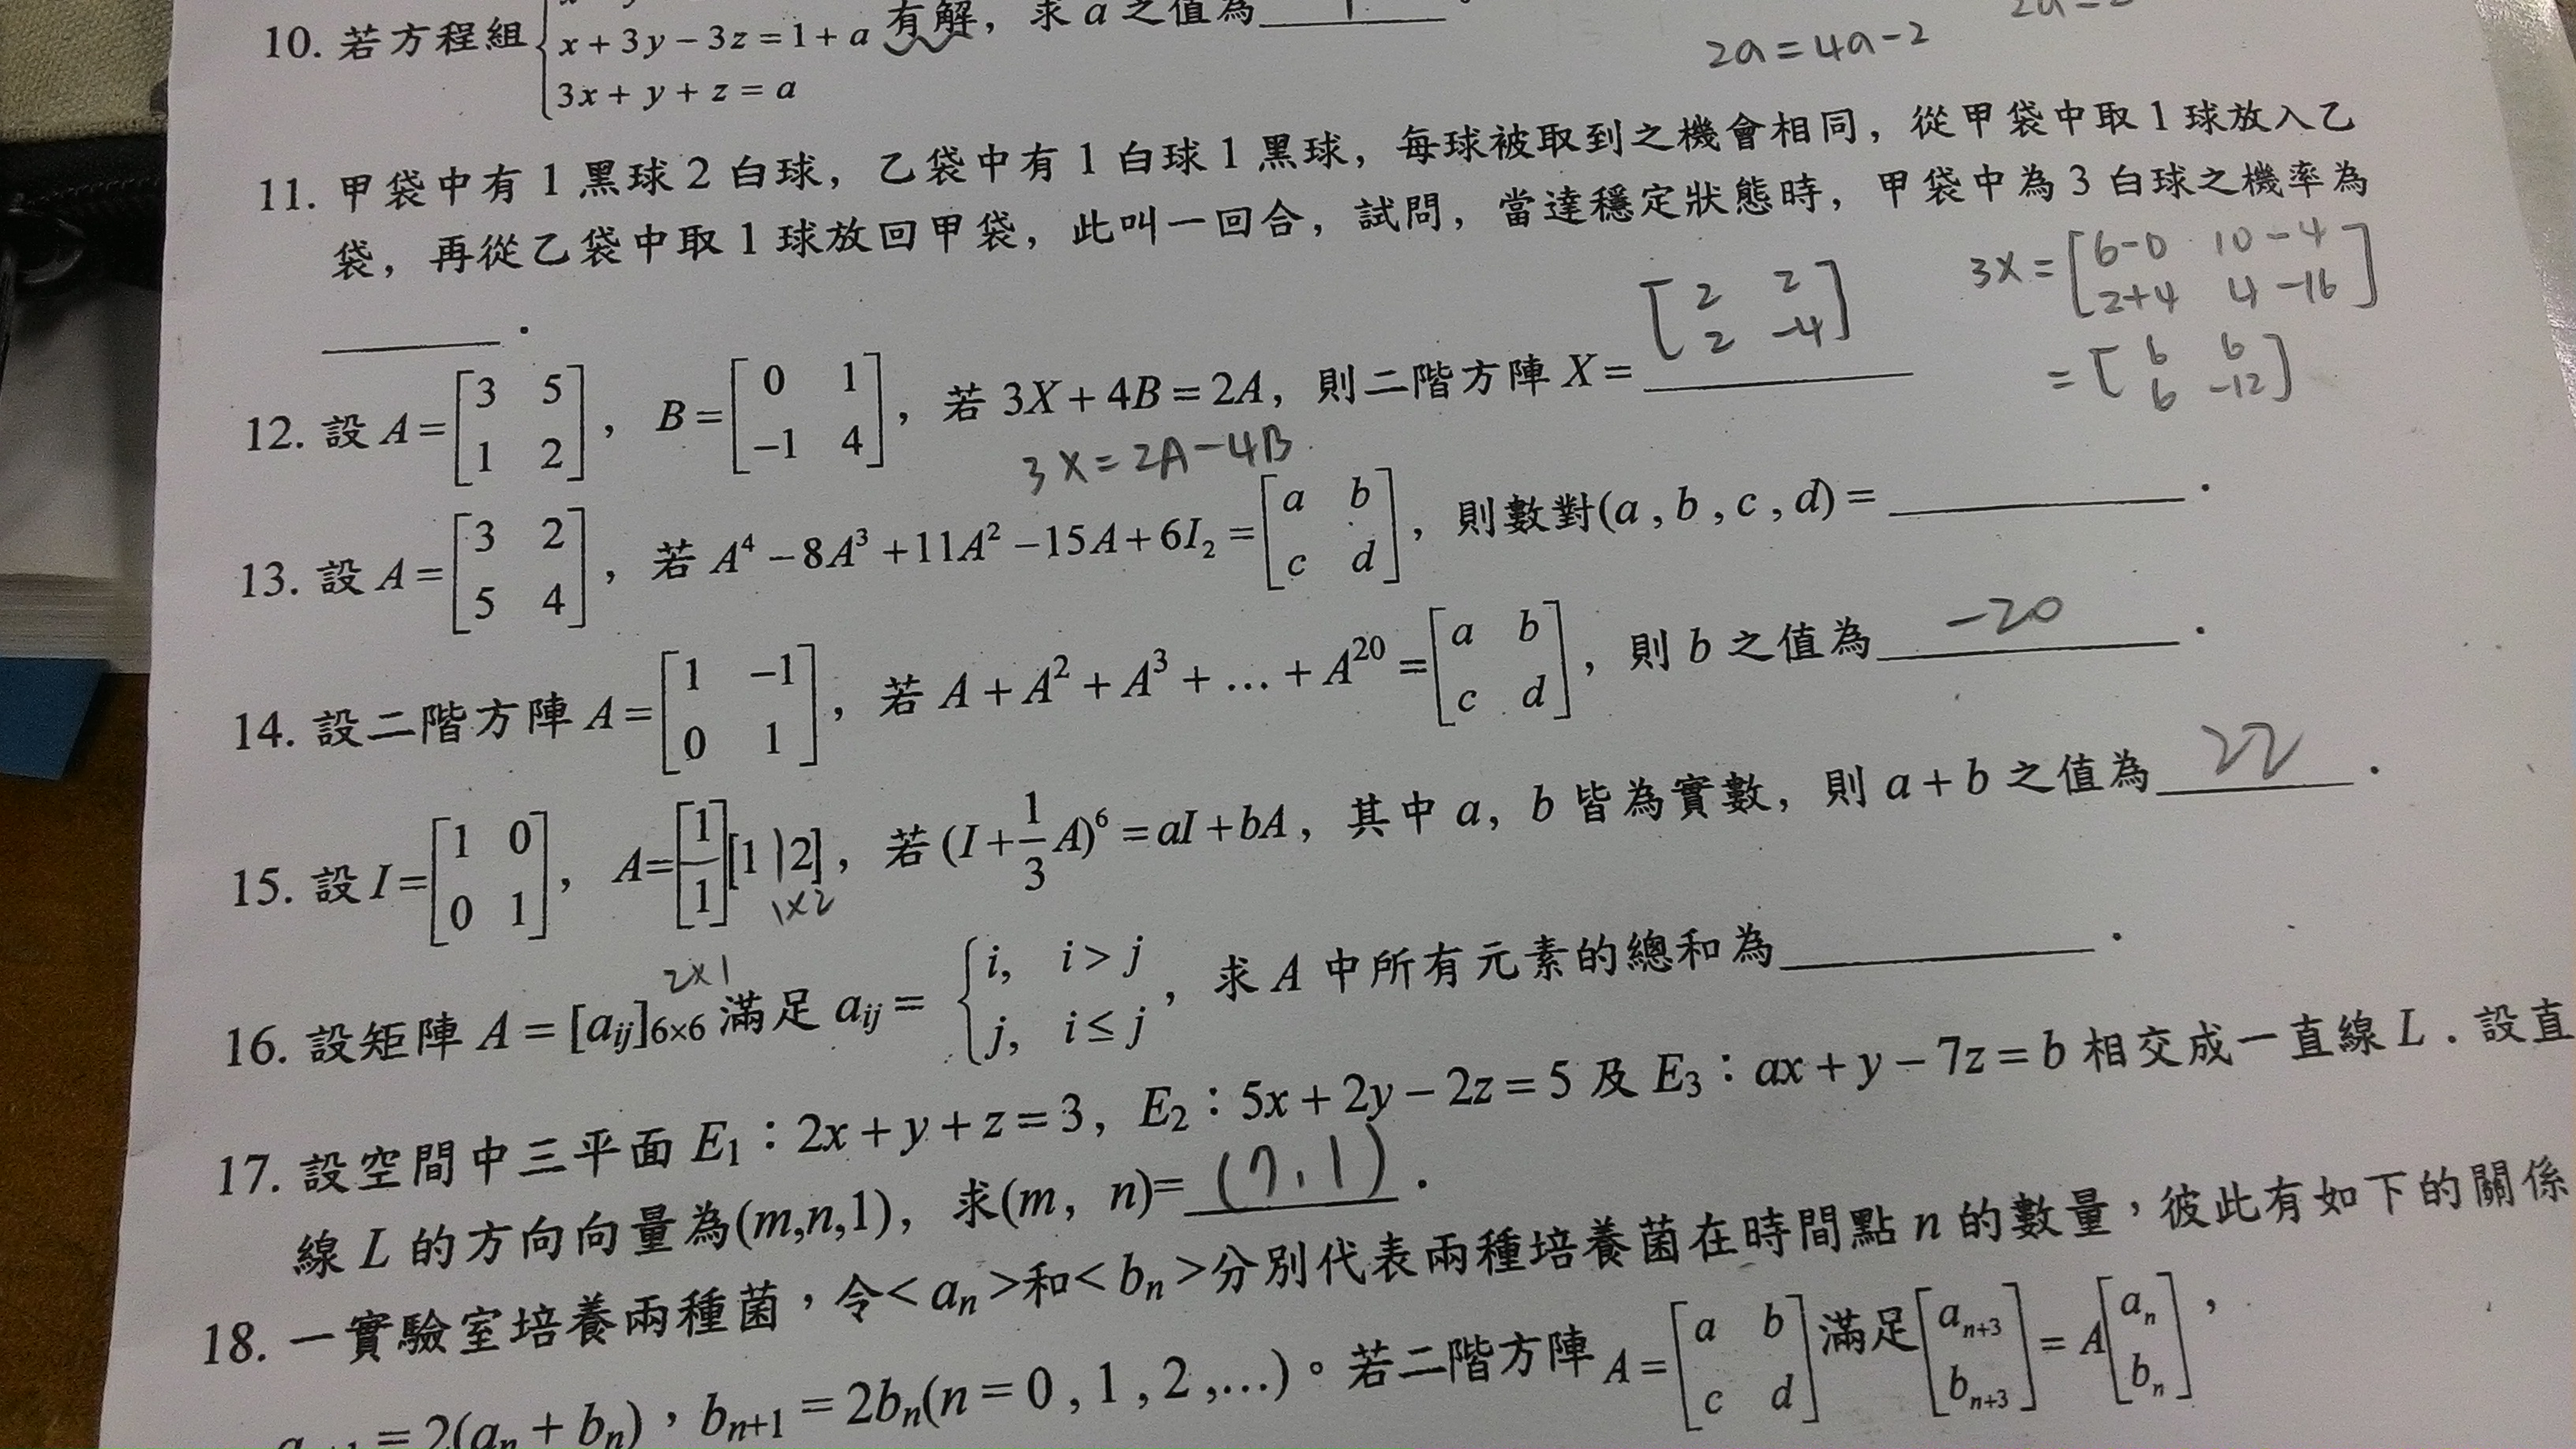 10. 若方程組{ x+3y−3z=1+a 有解，求 a 之值為
3x+y+z=a
2a=4a-2
11. 甲袋中有1黑球2白球，乙袋中有1白球1黑球，每球被取到之機會相同，從甲袋中取1球放入乙
袋，再從乙袋中取1球放回甲袋，此叫一回合，試問，當達穩定狀態時，甲袋中為3白球之機率為
______．
3X=[6-0 10-4; 2+4 4-16]
=[6 6; 6 -12]
12. 設A=[3 5; 1 2]，B=[0 1; −1 4]，若3X+4B=2A，則二階方陣X=[2 2; 2 -4]
3X=2A-4B
13. 設A=[3 2; 5 4]，若A⁴−8A³+11A²−15A+6I₂=[a b; c d]，則數對(a,b,c,d)=______．
14. 設二階方陣A=[1 −1; 0 1]，若A+A²+A³+…+A²⁰=[a b; c d]，則b之值為 -20．
15. 設I=[1 0; 0 1]，A=[1; 1][1 2]，若(I+1/3A)⁶=aI+bA，其中a，b皆為實數，則a+b之值為 22．
2×1 1×2
16. 設矩陣A=[aij]6×6滿足aij={i, i>j; j, i≤j，求A中所有元素的總和為______．
17. 設空間中三平面E₁：2x+y+z=3，E₂：5x+2y−2z=5及E₃：ax+y−7z=b相交成一直線L．設直
線L的方向向量為(m,n,1)，求(m，n)=(7,1)．
18. 一實驗室培養兩種菌，令<aₙ>和<bₙ>分別代表兩種培養菌在時間點n的數量，彼此有如下的關係
=2(aₙ+bₙ)，bₙ₊₁=2bₙ(n=0,1,2,…)。若二階方陣A=[a b; c d]滿足[aₙ₊₃; bₙ₊₃]=A[aₙ; bₙ]，